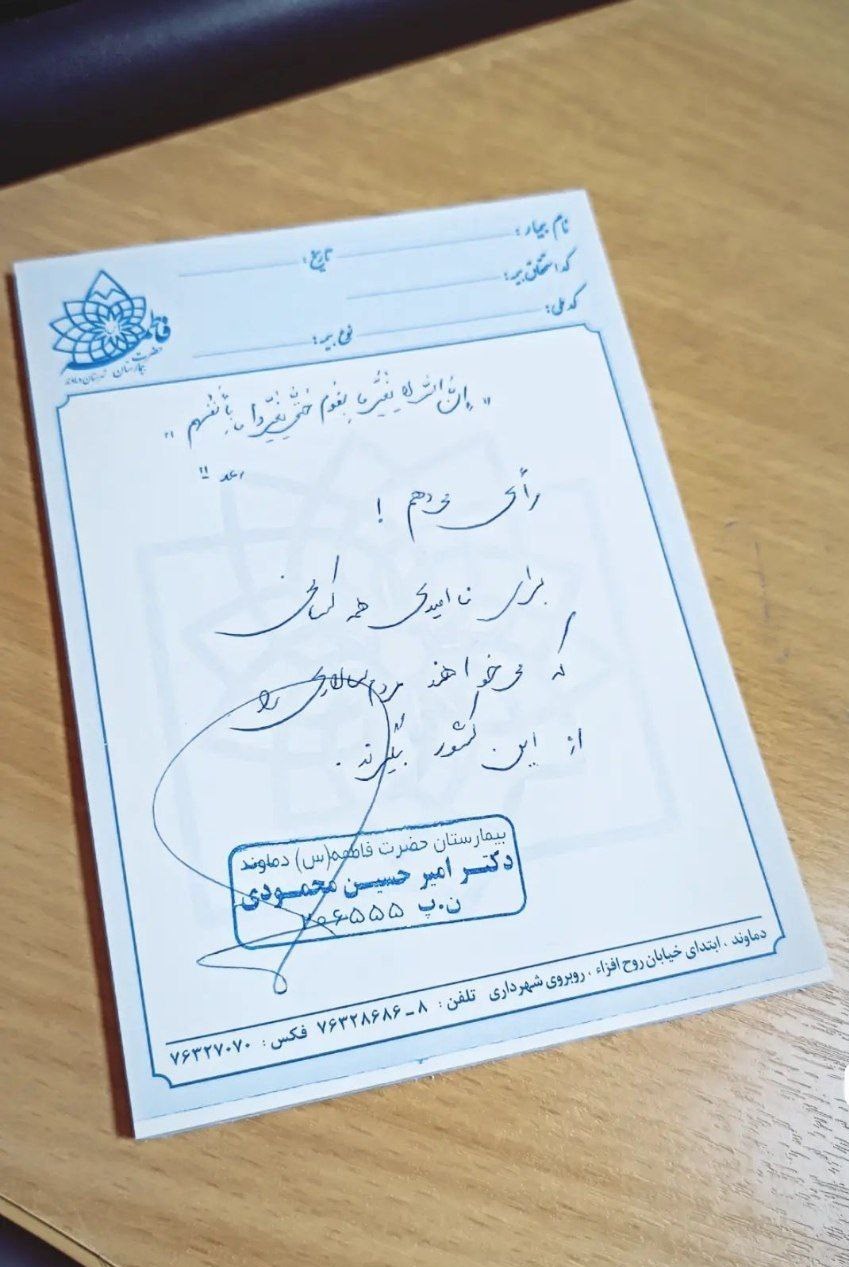 نام بیمار: تاریخ:
کد استحقاق بیمه:
کد ملی: نوع بیمه:
حضرت فاطمه
بیمارستان شهرستان دماوند
"إِنَّ اللهَ لا یُغَیِّرُ ما بِقَومٍ حَتّیٰ یُغَیِّروا ما بِأَنفُسِهِم"
رعد ۱۱
رأی می‌دهم !
برای ناامیدی همه کسانی
که می‌خواهند مردم‌سالاری را
از این کشور بگیرند.
بیمارستان حضرت فاطمه(س) دماوند
دکتر امیر حسین محمودی
ن.پ ۲۰۶۵۵۵
دماوند ، ابتدای خیابان روح افزاء ، روبروی شهرداری تلفن : ۸ ـ ۷۶۳۲۸۶۸۶ فکس : ۷۶۳۲۷۰۷۰